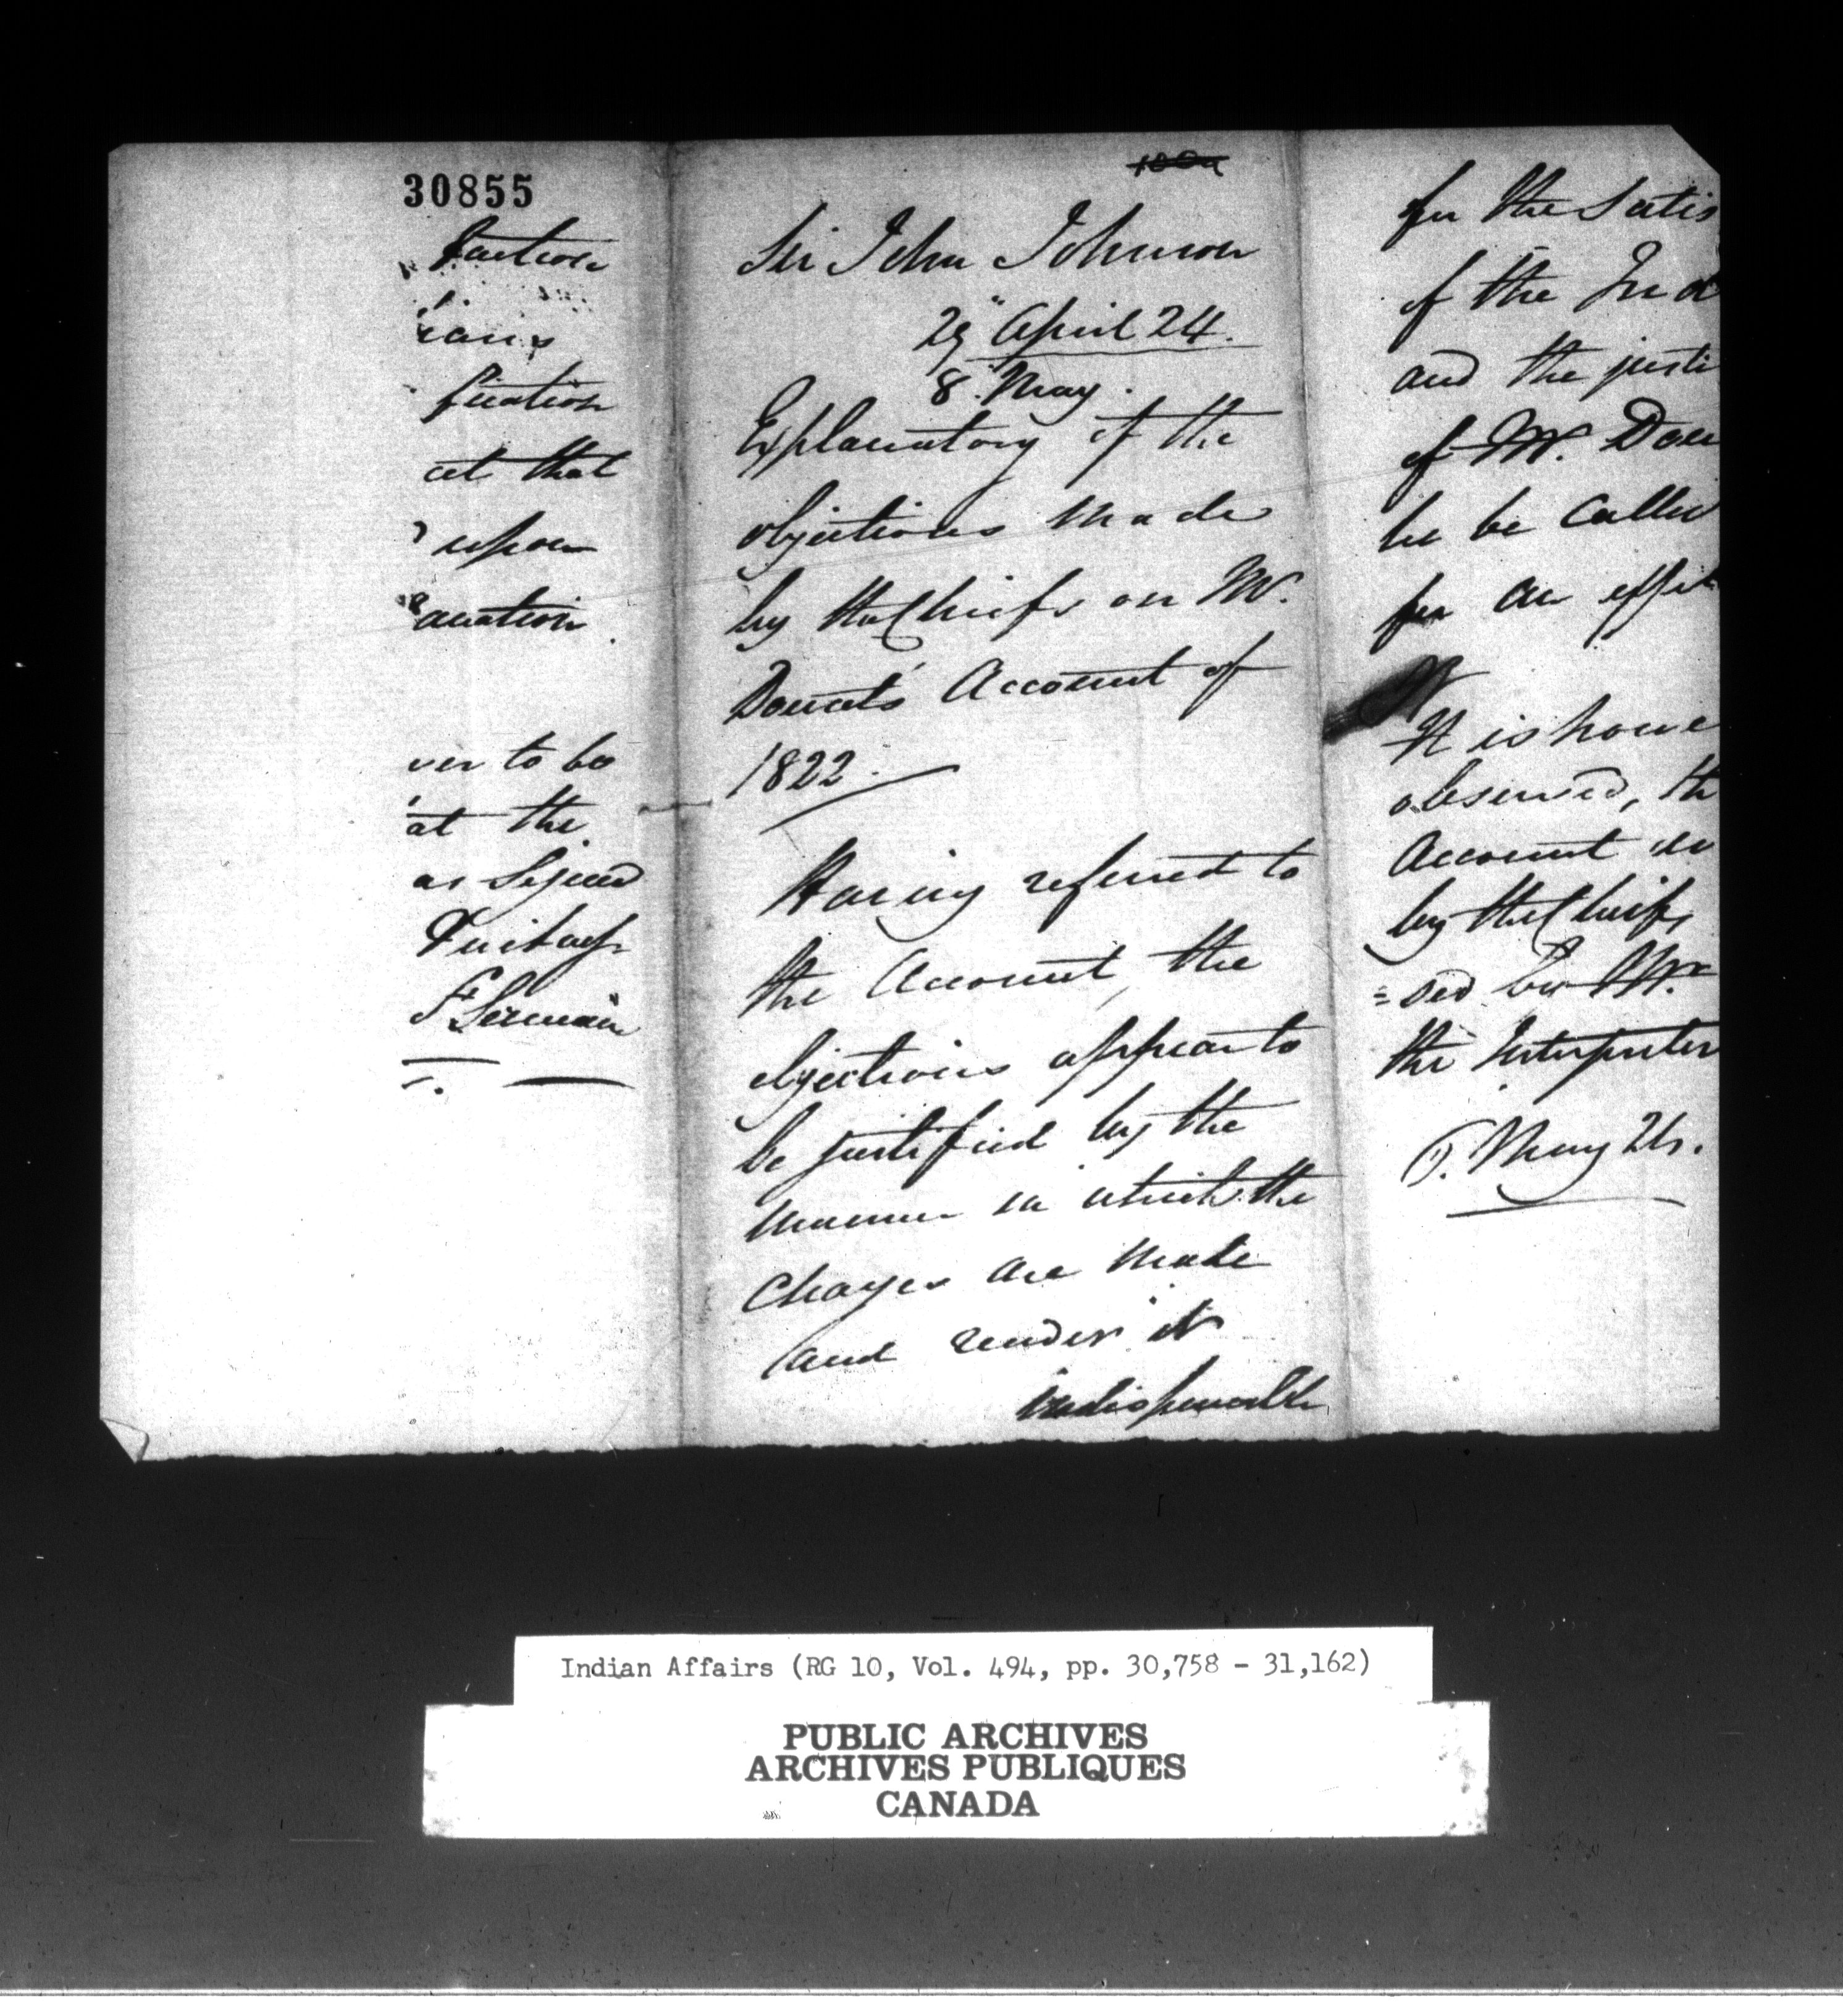 30855
faction
ians
fication
at that
upon
anation
ver to be
at the
as signed
F.
Sir John Johnson
29 April 24.
8 May.
Explanatory of the
objections made
by the Chiefs on Mr.
Doucet's Account of
1822.
Having referred to
the Account, the
objections appear to
be justified by the
manner in which the
Charges are made
and render it
indispensable
for the Satis
of the Ind
and the justi
of Mr. Dou
he be Called
for an
It is howe
observed, th
Account
by the Chiefs
=sed by Mr
the Interpreter
May 24.
Indian Affairs (RG 10, Vol. 494, pp. 30,758 - 31,162)
PUBLIC ARCHIVES
ARCHIVES PUBLIQUES
CANADA